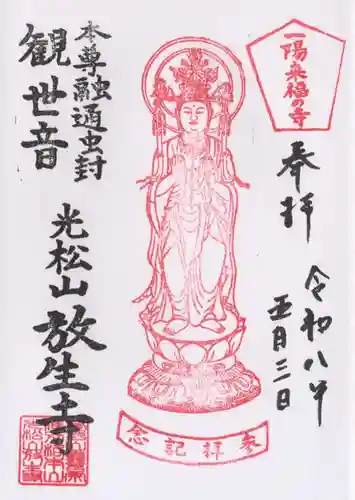 一陽来福の寺
奉拝
令和八年
五月三日
本尊融通虫封
観世音
光松山放生寺
参拝記念